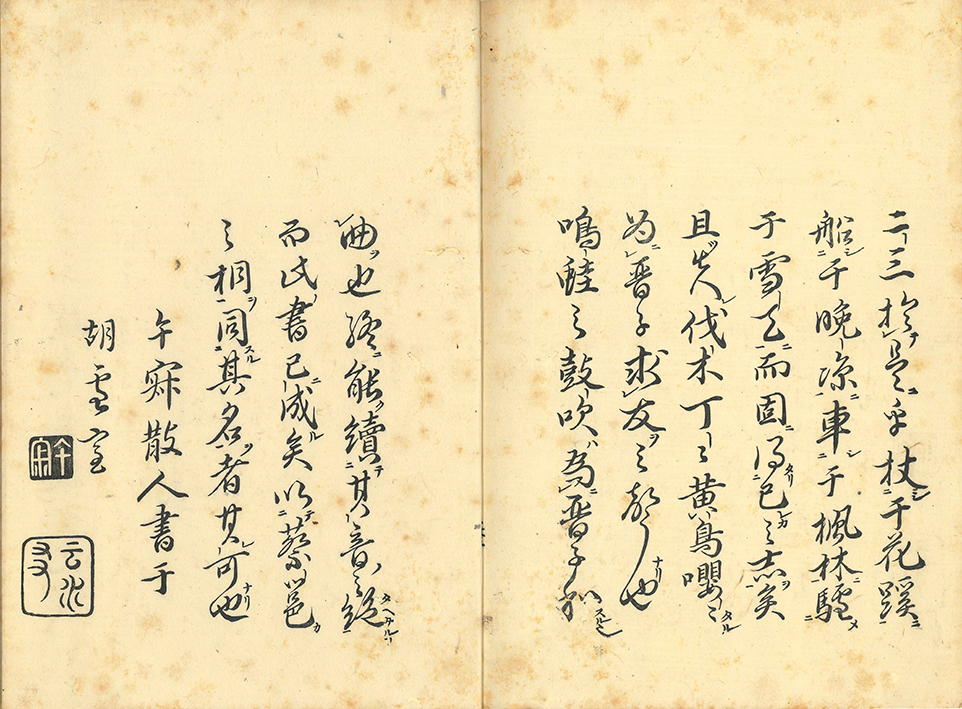 二三於是乎杖于花蹊
船于晩涼車于楓林驢
于雪天而固得已之志矣
且夫人伐木丁〻黄鳥嚶〻
為晋子求友之聲也
鳴蛙之鼓吹為晋子和
曲也終能續其音之絶
而此書已成矣以蔡邕
之相同其名者其可也
午寂散人書于
胡雲室